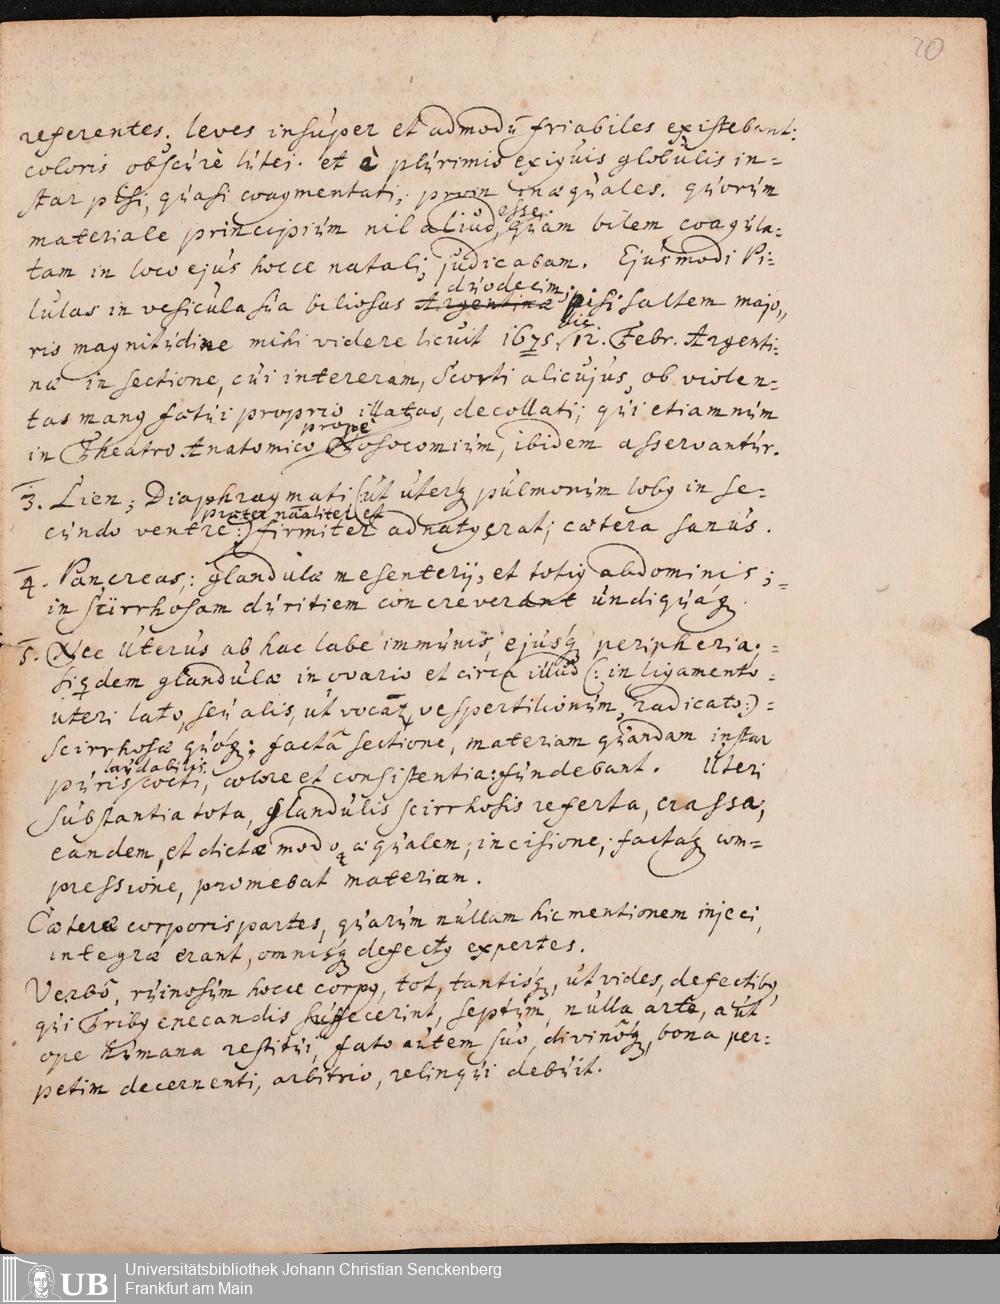 20
referentes; leves insuper et admodū friabiles existebant:
coloris obscurè lutei. et è plurimis exiguis globulis in=
star pisi, quasi coagmentati; proin inæquales. quorum
esse
materiale principium nil aliud, quam bilem coagula=
tam in loco ejus hocce natali, judicabam. Ejusmodi Pi=
duodecim,
lulas in vesicula sua biliosas Argentinæ pisi saltem majo„
die
ris magnitudine mihi videre licuit 1675, 12. Febr. Argenti=
næ in sectione, cui intereram, Scorti alicujus, ob violen=
tas manq fœtui proprio illatas, decollati; qui etiamnum
prope
in Theatro Anatomico Nosocomium, ibidem asservantur.
3. Lien; Diaphragmati (ut uterq pulmonum lobq in se=
præter nāaliter et
cundo ventre:) firmiter adnatq erat; cætera sanus.
4. Pancreas; glandulæ mesenterij, et totiq abdominis;=
in scirrhosam duritiem concreverant undiquaq.
5. Nec Uterus ab hac labe immunis, ejusq peripheria.=
siqdem glandulæ in ovario et circa illud (: in ligamento=
uteri lato, seu alis, ut vocāt, vespertilionum, radicato:)=
scirrhosæ quóq; factâ sectione, materiam quandam instar
laudabilis
puris cocti, colore et consistentia: fundebant. Uteri
substantia tota, glandulis scirrhosis referta, crassa;
eandem, et dictæ modo æqualem, incisione, factaq com=
pressione, promebat materiam.
Cæteræ corporis partes, quarum nullam hic mentionem injeci,
integræ erant, omnisq defectq expertes.
Verbô, ruinosum hocce corpq, tot, tantisq, ut vides, defectibq,
qui Tribq enecandis suffecerint, septum, nulla arte, aut
ope humana restitui, fato autem suo, divinôq, bona per=
petim decernenti, arbitrio, relinqui debuit.
UB
Universitätsbibliothek Johann Christian Senckenberg
Frankfurt am Main